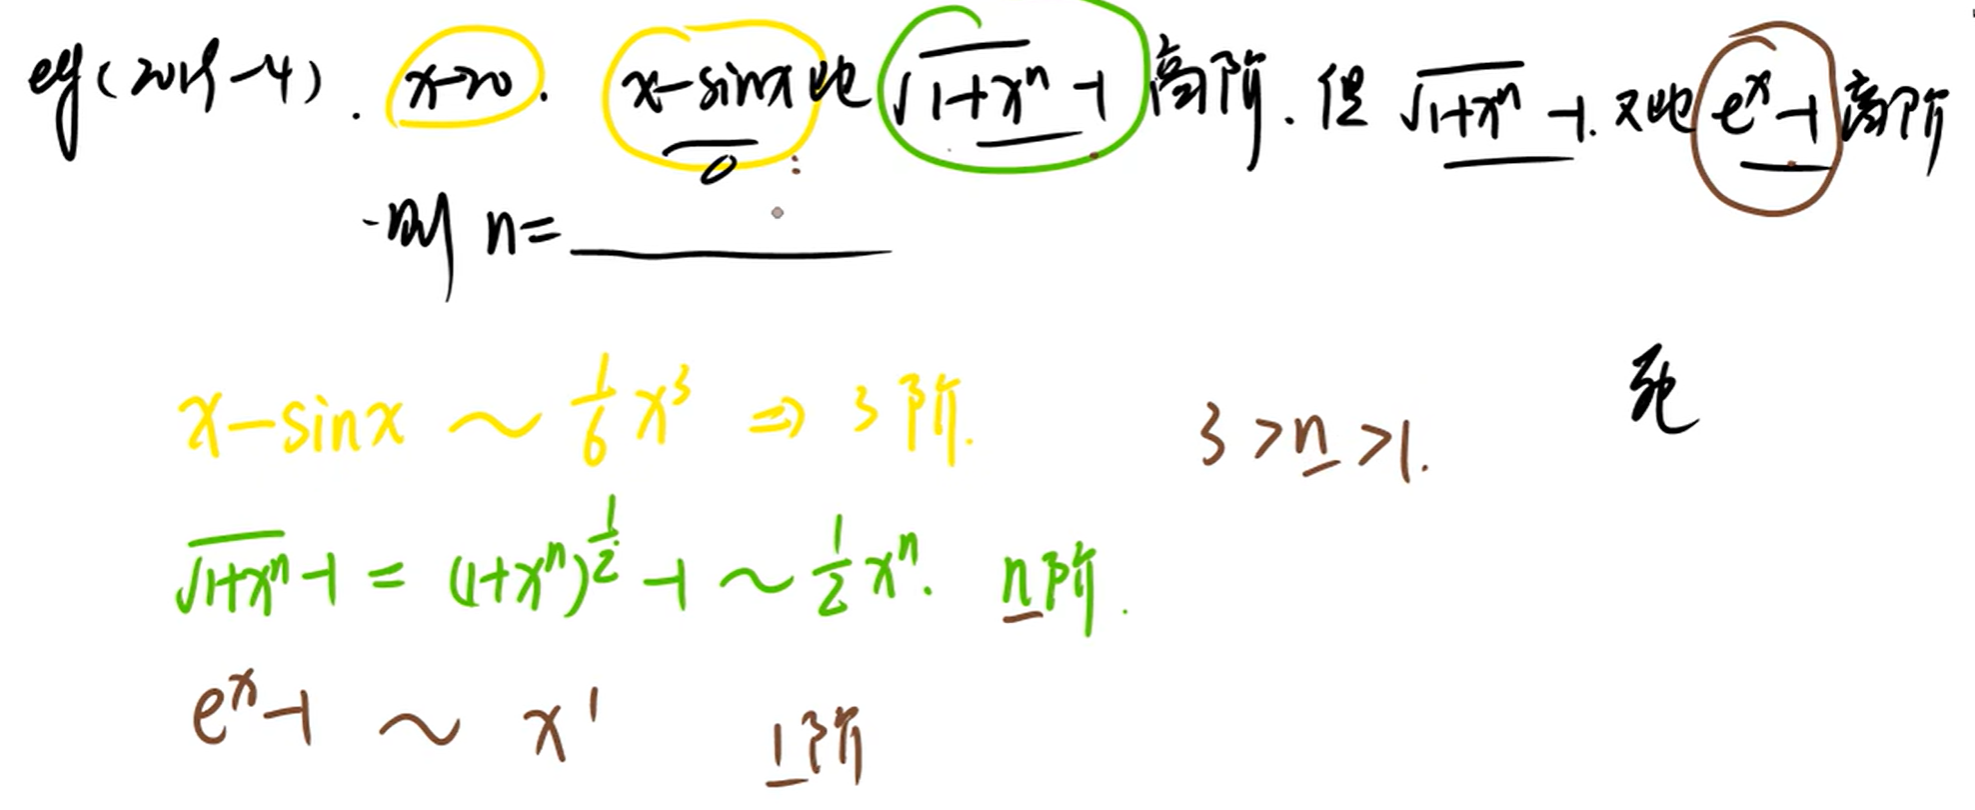 eg(2019-4). x→0. x-sinx比√(1+xⁿ) -1高阶. 但 √(1+xⁿ) -1. 又比 eˣ-1高阶
0
·则 n=______
x-sinx ~ 1/6 x³ ⇒ 3阶.
3>n>1.
√(1+xⁿ) -1 = (1+xⁿ)^(1/2) -1 ~ 1/2 xⁿ. n阶.
eˣ-1 ~ x¹ 1阶